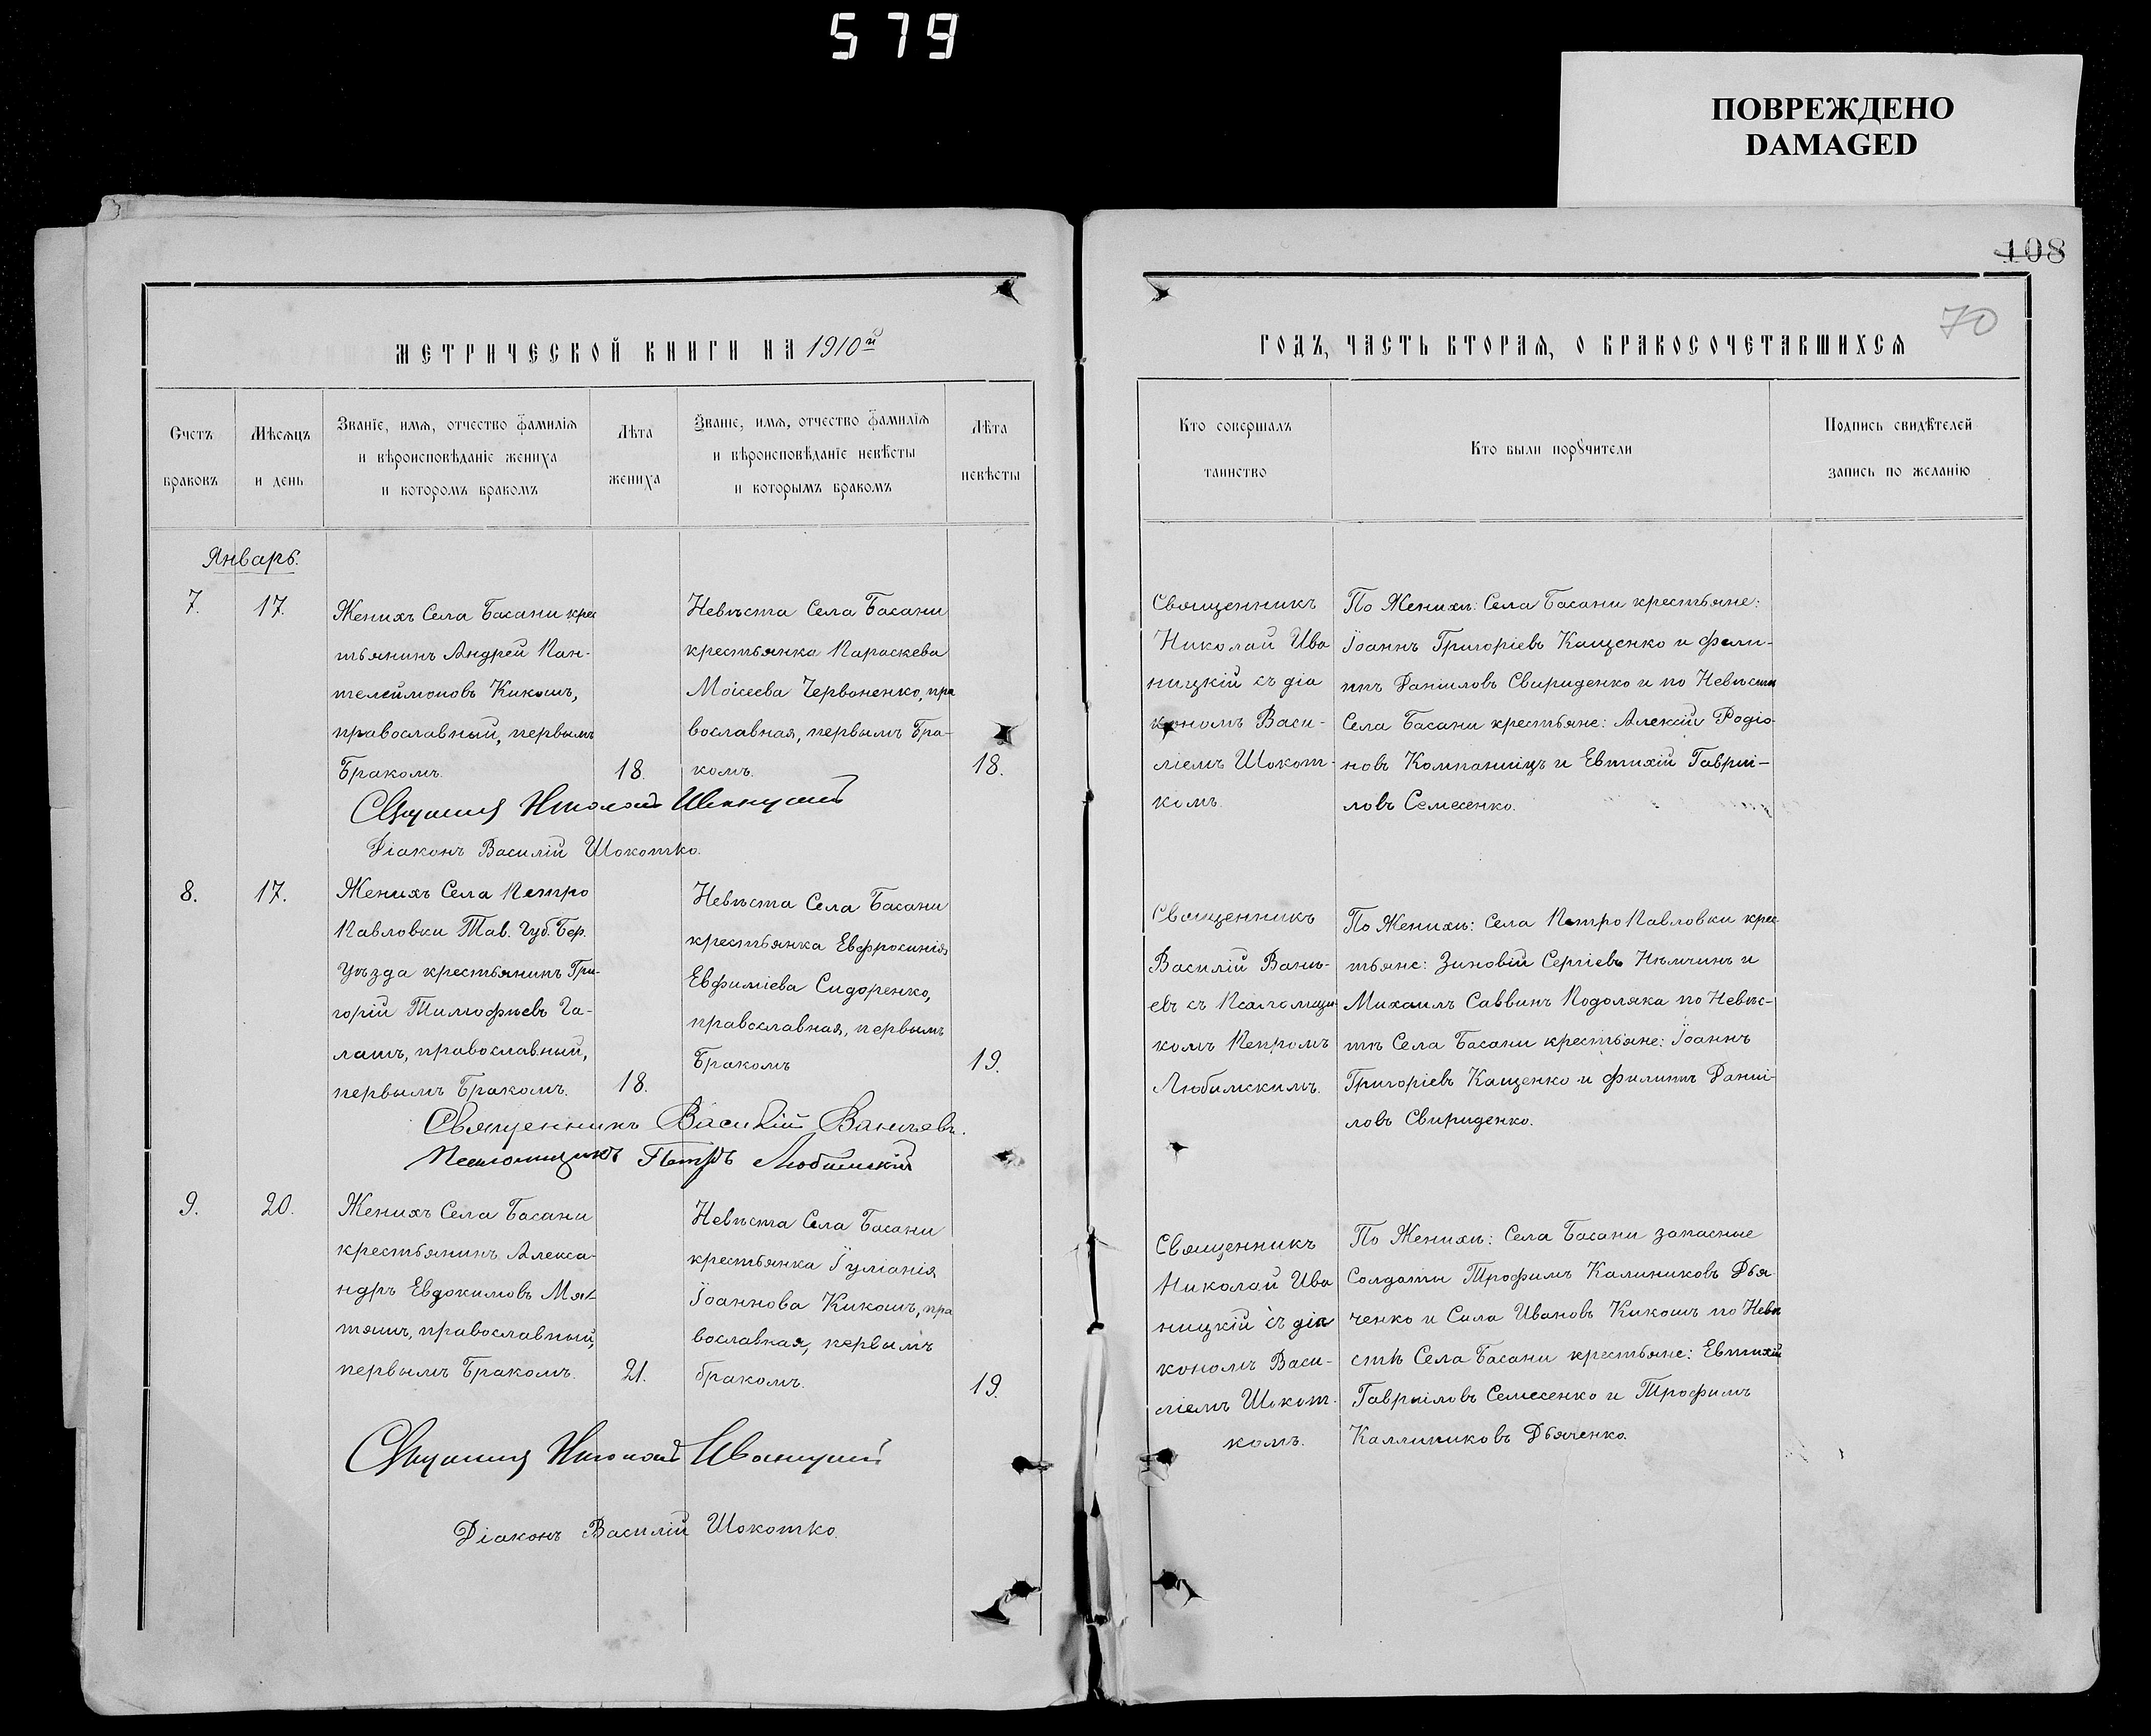 579
ПОВРЕЖДЕНО
DAMAGED
108
70
МЕТРИЧЕСКОЙ КНИГИ НА 1910й
ГОДЪ, ЧАСТЬ ВТОРАЯ, О БРАКОСОЧЕТАВШИХСЯ
Счетъ
браковъ
Мѣсяцъ
и день
Званіе, имя, отчество фамилія
и вѣроисповѣданіе жениха
и которомъ бракомъ
Лѣта
жениха
Званіе, имя, отчество фамилія
и вѣроисповѣданіе невѣсты
и которымъ бракомъ
Лѣта
невѣсты
Кто совершалъ
таинство
Кто были поручители
Подпись свидѣтелей
запись по желанію
Январь.
7.
17.
Женихъ Села Басани крес
тьянинъ Андрей Пан-
телеймоновъ Кикошъ,
православный, первымъ
Бракомъ.
18.
Невѣста Села Басани
крестьянка Параскева
Моісеева Червоненко, пра
вославная, первымъ Бра-
комъ.
18.
Священникъ
Николай Ива
ницкій съ діа
кономъ Васи-
ліемъ Шокот-
комъ.
По Женихѣ: Села Басани крестьяне:
Іоаннъ Григоріевъ Кащенко и Фили-
ппъ Даніиловъ Свириденко и по Невѣстѣ
Села Басани крестьяне: Алексій Родіо-
новъ Компаніецъ и Евтихій Гавріи-
ловъ Семесенко.
Николай
Діаконъ Василій Шокотко.
8.
17.
Женихъ Села Петро
Павловки Тав. Губ. Бер.
Уѣзда крестьянинъ Гри-
горій Тимофѣевъ Га-
лашъ, православный,
первымъ Бракомъ.
18.
Невѣста Села Басани
крестьянка Евфросинія
Евфиміева Сидоренко,
православная, первымъ
Бракомъ
19.
Священникъ
Василій Вань-
евъ съ Псаломщи
комъ Петромъ
Любимскимъ.
По Женихѣ: Села ПетроПавловки крес
тьяне: Зиновій Сергіевъ Нѣмчинъ и
Михаилъ Саввинъ Подоляка по Невѣс-
тѣ Села Басани крестьяне: Іоаннъ
Григоріевъ Кащенко и Филиппъ Даніи-
ловъ Свириденко.
Священникъ Василій Ваньевъ.
Псаломщикъ Петръ Любимскій
9.
20.
Женихъ Села Басани
крестьянинъ Алекса-
ндръ Евдокимовъ Мят-
тяшъ, православный,
первымъ Бракомъ.
21.
Невѣста Села Басани
крестьянка Іуліанія
Іоаннова Кикошъ, пра
вославная, первымъ
бракомъ.
19.
Священникъ
Николай Ива
ницкій съ діа
кономъ Васи-
ліемъ Шокот-
комъ.
По Женихѣ: Села Басани запасные
Солдаты Трофимъ Калиниковъ Дья
ченко и Сила Ивановъ Кикошъ по Невѣ
стѣ Села Басани крестьяне: Евтихій
Гавріиловъ Семесенко и Трофимъ
Каллиниковъ Дьяченко.
Николай Иваницкій
Діаконъ Василій Шокотко.